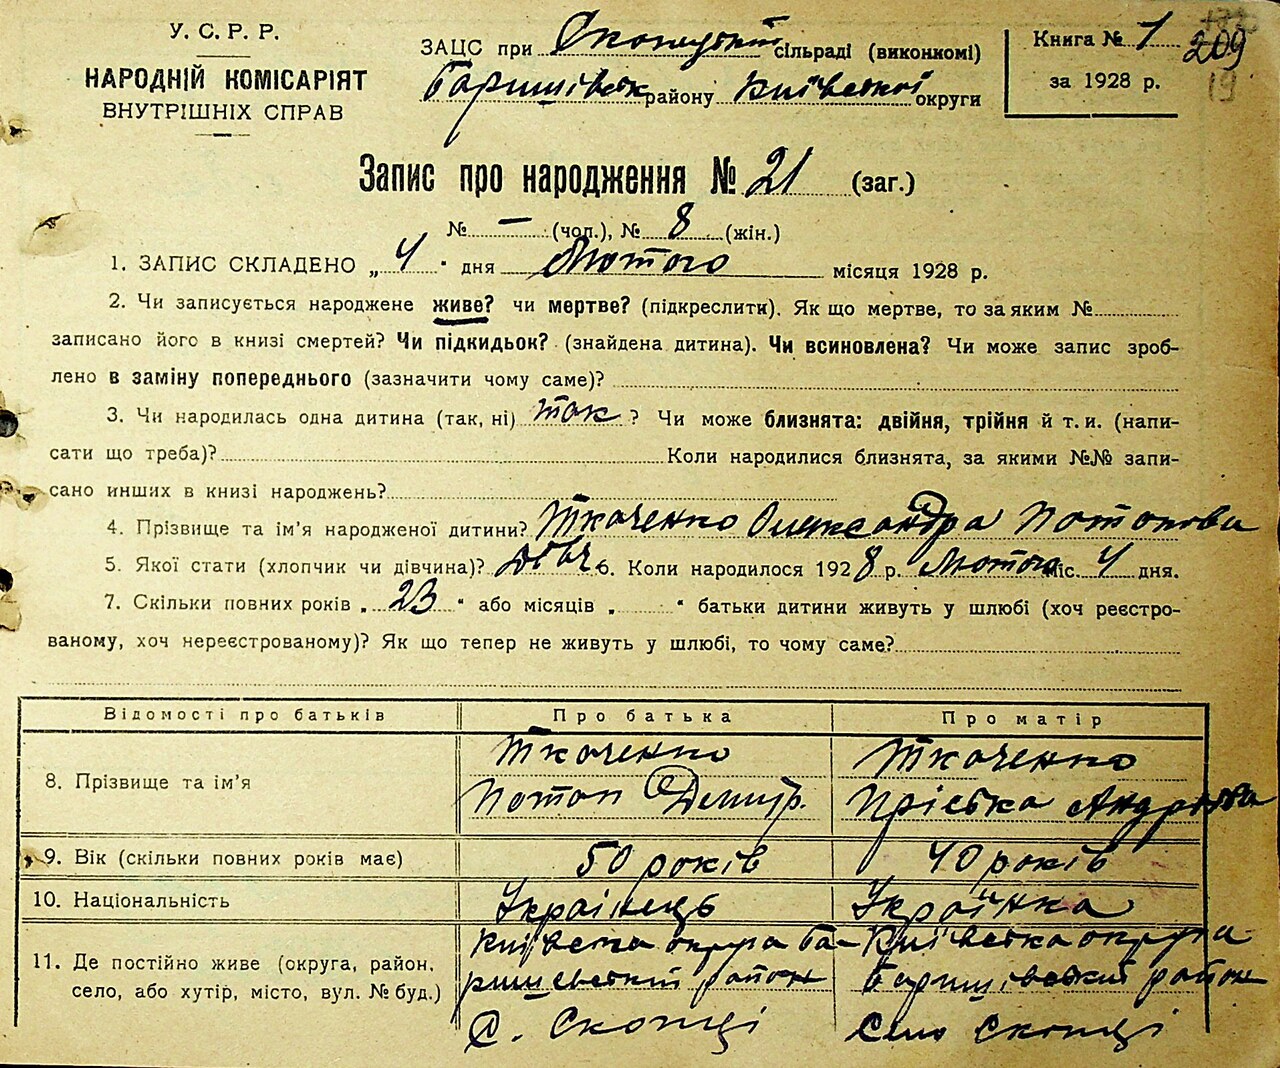 У. С. Р. Р.
НАРОДНІЙ КОМІСАРІЯТ
ВНУТРІШНІХ СПРАВ
ЗАЦС при Скопецкій сільраді (виконкомі)
Баришівськ району Київської округи
Книга № 1
209
за 1928 р.
19
Запис про народження № 21 (заг.)
№ — (чол.), № 8 (жін.)
1. ЗАПИС СКЛАДЕНО „ 4 " дня Лютого місяця 1928 р.
2. Чи записується народжене живе? чи мертве? (підкреслити). Як що мертве, то за яким №
записано його в книзі смертей? Чи підкидьок? (знайдена дитина). Чи всиновлена? Чи може запис зроб-
лено в заміну попереднього (зазначити чому саме)?
3. Чи народилась одна дитина (так, ні) так ? Чи може близнята: двійня, трійня й т. и. (напи-
сати що треба)? Коли народилися близнята, за якими №№ запи-
сано инших в книзі народжень?
4. Прізвище та ім'я народженої дитини? Ткаченко Олександра Потапова
5. Якої стати (хлопчик чи дівчина)? дівч. 6. Коли народилося 1928 р. Лютого міс. 4 дня.
7. Скільки повних років „ 23 " або місяців „ " батьки дитини живуть у шлюбі (хоч реєстро-
ваному, хоч нереєстрованому)? Як що тепер не живуть у шлюбі, то чому саме?
Відомості про батьків Про батька Про матір
8. Прізвище та ім'я
Ткаченко
Потап Демид.
Ткаченко
Пріська Андріїва
9. Вік (скільки повних років має) 50 років 40 років
10. Національність Українець Українка
11. Де постійно живе (округа, район,
село, або хутір, місто, вул. № буд.)
Київська округа Ба-
ришевський район
С. Скопці
Київська округа
Баришівський район
село Скопці